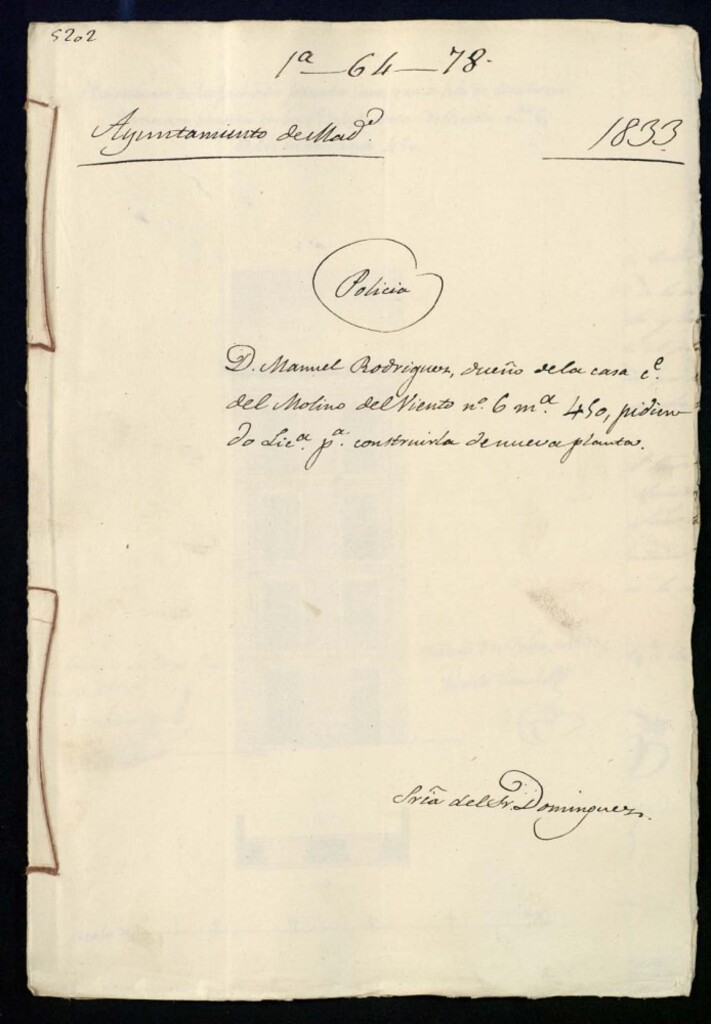 5202
1ª — 64 — 78.
Ayuntamiento de Madᵈ
1833
Policia
D. Manuel Rodriguez, dueño de la casa cᵉ.
del Molino del Viento nº. 6 mª. 450, pidien
do Licª. pª. construirla de nueva planta.
Sría del Sr. Dominguez.